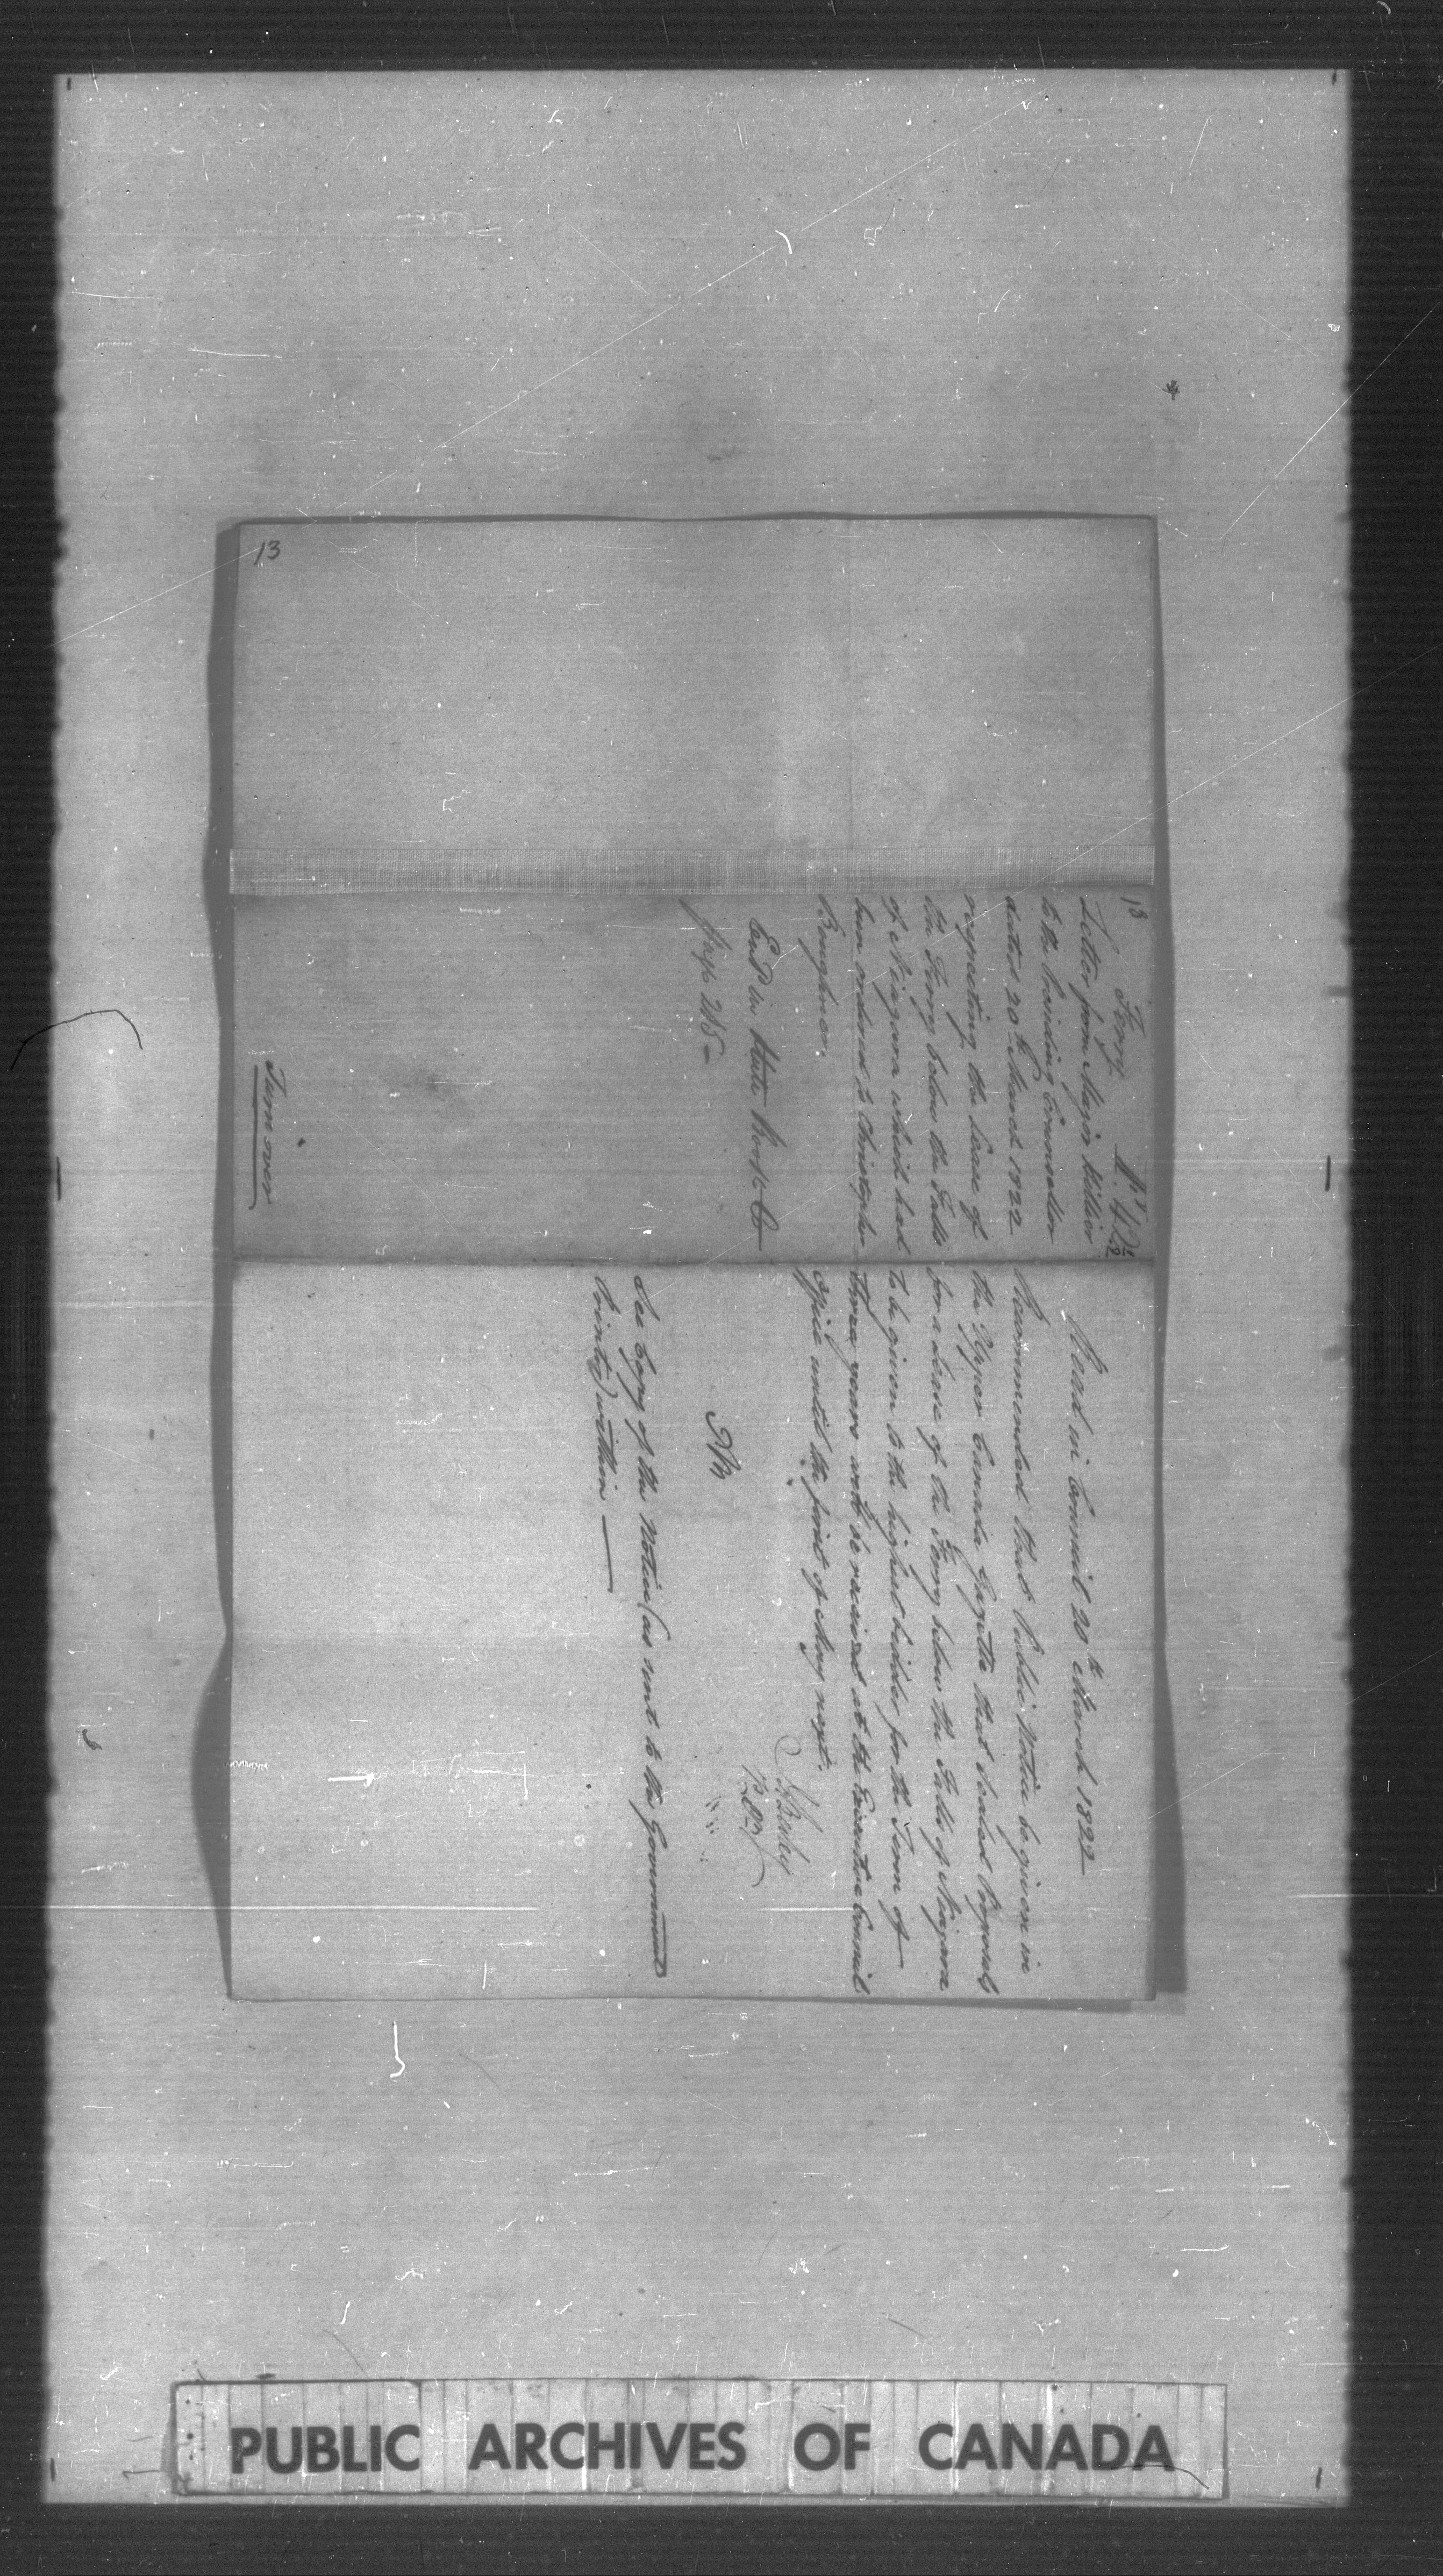 13
13 Ferry
Letter from Major Hillier
to the Presiding Councillor
dated 20th March 1822
respecting the Lease of
the Ferry below the Falls
of Niagara which had
been ordered to Christopher
Boughner.
Ent'd in State Book
page 215-
Turn over
Read in Council 20th March 1822
Recommended that Public Notice be given in
the Upper Canada Gazette that Sealed Proposals
for a Lease of the Ferry below the Falls of Niagara
to be given to the highest bidder for the Term of
three years will be received at the Executive Council
Office until the first of May next.
See Copy of the Notice (as sent to the Government
Printer) within
PUBLIC ARCHIVES OF CANADA